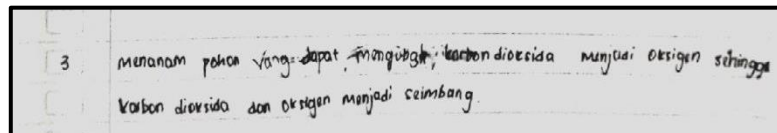 3 menanam pohon yang dapat mengubah karbon dioksida menjadi oksigen sehingga
karbon dioksida dan oksigen menjadi seimbang.